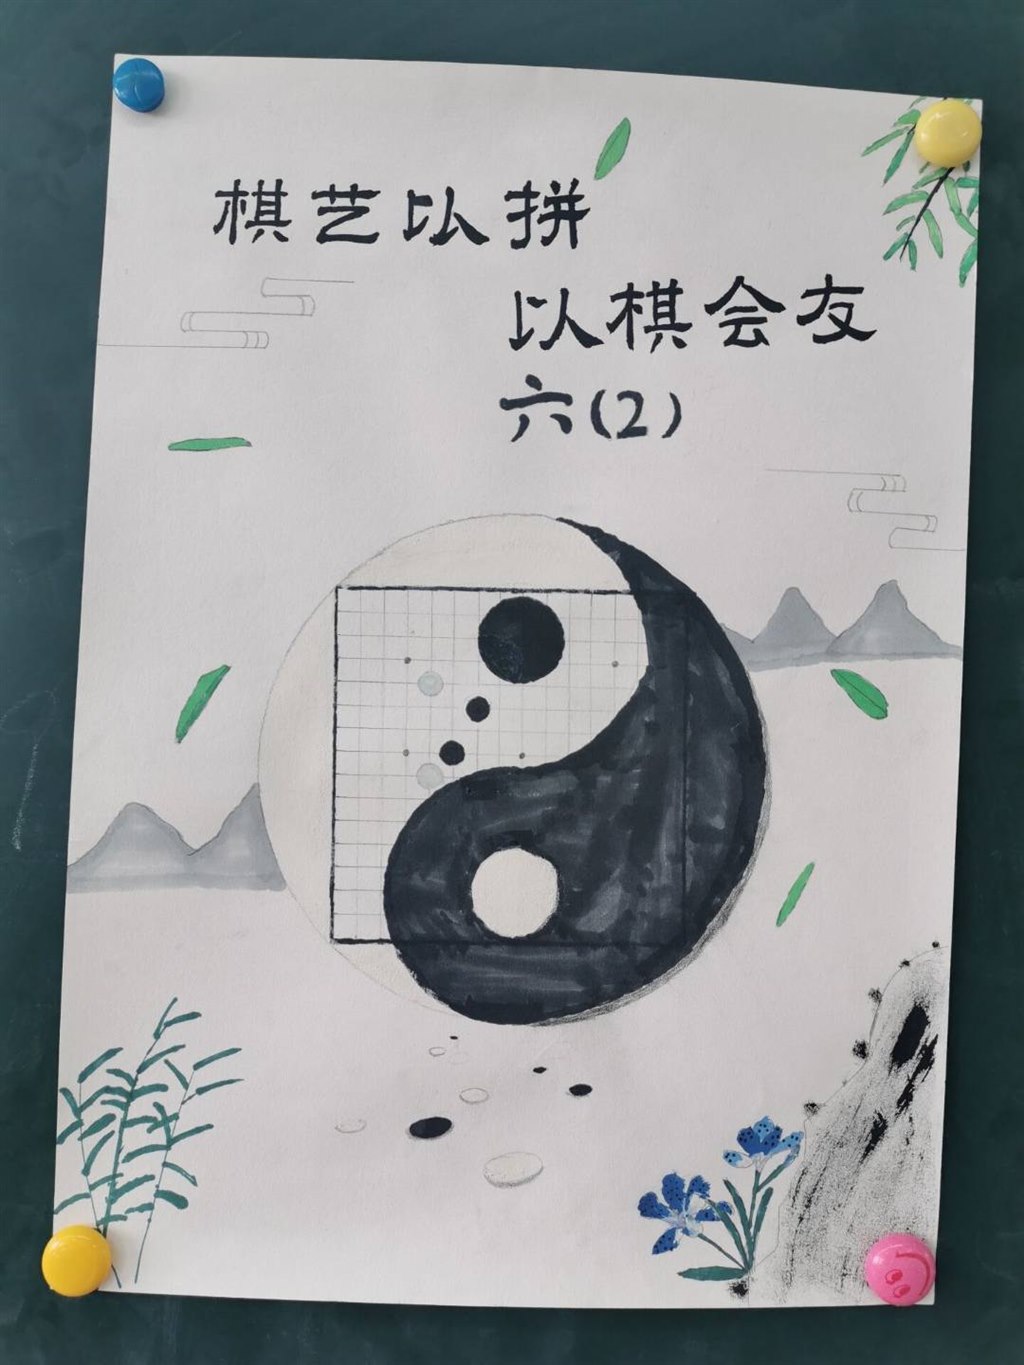 棋艺以拼
以棋会友
六(2)